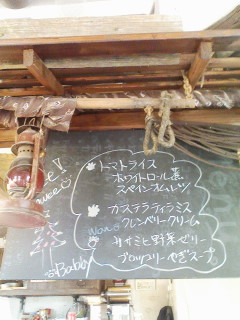 トマトライス
ホワイトロール薫
スペインオムレツ
カステラティラミス
クレンベリークリーム
ササミと野菜ゼリー
ブロッコリーやぎスープ
Babb